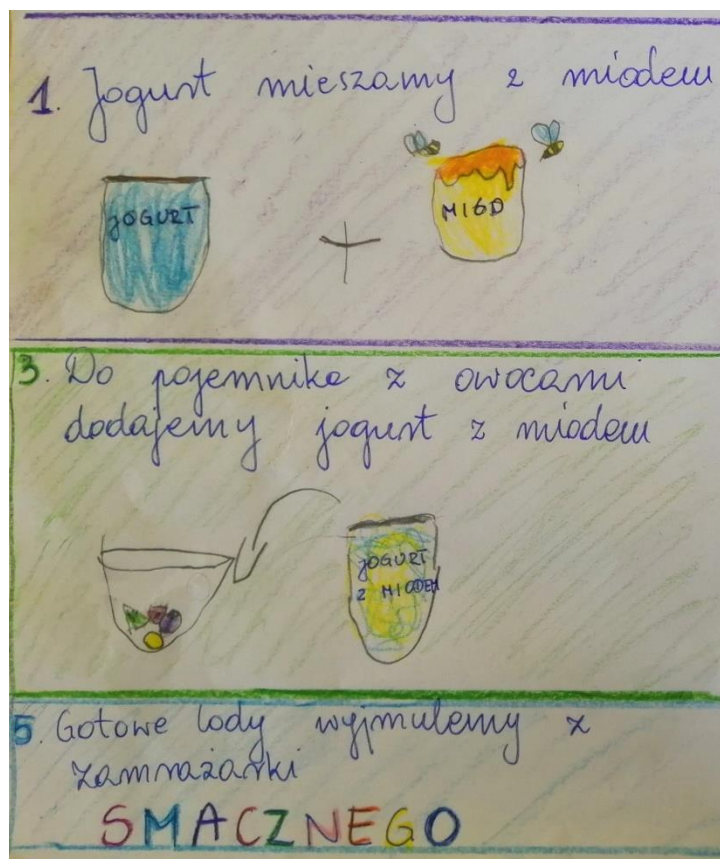 1. Jogurt mieszamy z miodem
JOGURT
+
MIÓD
3. Do pojemnika z owocami
dodajemy jogurt z miodem
JOGURT
Z MIODEM
5. Gotowe lody wyjmulemy z
zamrażarki
SMACZNEGO